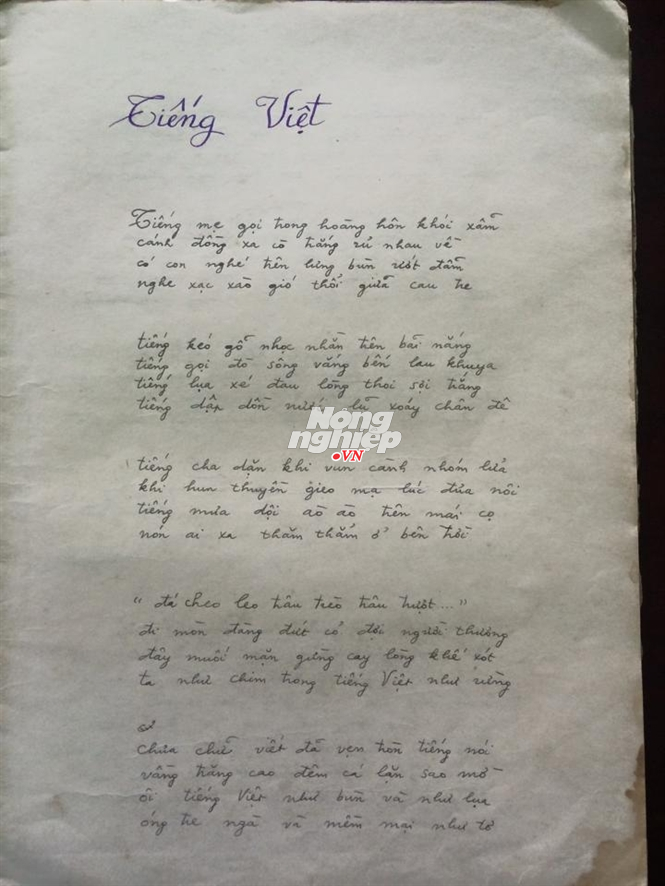 Tiếng Việt
Tiếng mẹ gọi trong hoàng hôn khói xẫm
cánh đồng xa cò trắng rủ nhau về
có con nghé trên lưng bùn ướt đẫm
nghe xạc xào gió thổi giữa cau tre
tiếng kéo gỗ nhọc nhằn trên bãi nắng
tiếng gọi đò sông vắng bến lau khuya
tiếng lụa xé đau lòng thoi sợi trắng
tiếng dập dồn nước lũ xoáy chân đê
Nông
nghiệp
.VN
tiếng cha dặn khi vun cành nhóm lửa
khi hun thuyền gieo mạ lúc đưa nôi
tiếng mưa dội ào ào trên mái cọ
nón ai xa thăm thẳm ở bên trời
"đá cheo leo trâu trèo trâu trượt...."
đi mòn đàng đứt cỏ đợi người thương
đây muối mặn gừng cay lòng khế xót
ta như chim trong tiếng Việt như rừng
chưa chữ viết đã vẹn tròn tiếng nói
vầng trăng cao đêm cá lặn sao mờ
ôi tiếng Việt như bùn và như lụa
óng tre ngà và mềm mại như tơ